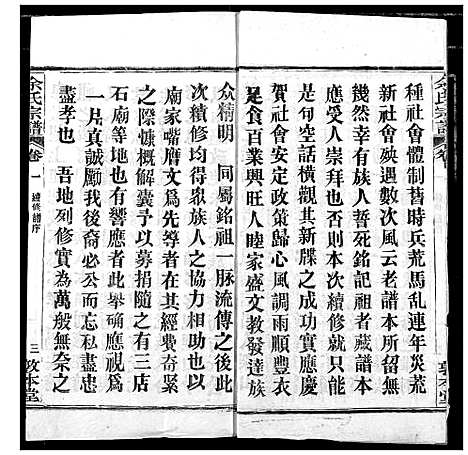 種社會體制舊時兵荒馬乱連年災荒
新社會殃遇數次風云老譜本所留無
幾然幸有族人誓死銘記祖者藏譜本
應受人崇拜也否則本次續修就可能
是句空話橫觀其新牒之成功實應慶
賀社會安定政策歸心風調雨順豐衣
足食百業旺興人睦家盛文教發達族
众精明　同屬銘祖一脉流傳之後此
次續修均得眾族人之協力相扶也以
廟家嘴膺文為先導者在其經費奇緊
之際慷概解囊予以募捐隨之有三店
石廟等地也有響應者此舉确應視為
一片真誠勵我後裔必公而忘私盡忠
盡孝也　吾地列修實為萬般無奈之
余氏宗譜
卷一
續修譜序
三
敦本堂